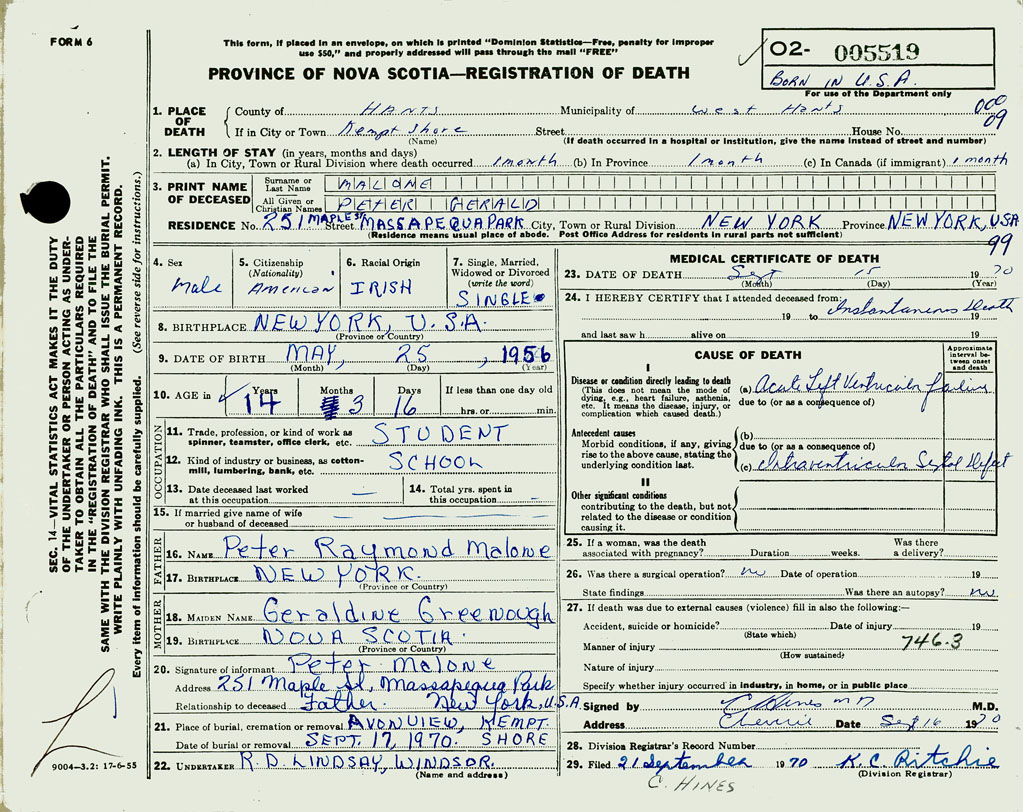 FORM 6
This form, if placed in an envelope, on which is printed "Dominion Statistics—Free, penalty for improper
use $50," and properly addressed will pass through the mail "FREE"
PROVINCE OF NOVA SCOTIA—REGISTRATION OF DEATH
02- 005519
BORN IN U.S.A.
For use of the Department only
1. PLACE OF DEATH
County of HANTS Municipality of West Hants 000
If in City or Town Kempt Shore Street House No. 09
(Name) (If death occurred in a hospital or institution, give the name instead of street and number)
2. LENGTH OF STAY (in years, months and days)
(a) In City, Town or Rural Division where death occurred 1 month (b) In Province 1 month (c) In Canada (if immigrant) 1 month
3. PRINT NAME OF DECEASED
Surname or Last Name MALONE
All Given or Christian Names PETER GERALD
RESIDENCE No. 251 MAPLE ST Street MASSAPEQUA PARK City, Town or Rural Division NEW YORK Province NEW YORK, USA
(Residence means usual place of abode. Post Office Address for residents in rural parts not sufficient)
99
4. Sex Male
5. Citizenship (Nationality) American
6. Racial Origin IRISH
7. Single, Married, Widowed or Divorced (write the word) SINGLE
8. BIRTHPLACE NEW YORK, U.S.A.
(Province or Country)
9. DATE OF BIRTH MAY, 25, 1956
(Month) (Day) (Year)
10. AGE in Years 14 Months 3 Days 16 If less than one day old hrs. or min.
OCCUPATION
11. Trade, profession, or kind of work as spinner, teamster, office clerk, etc. STUDENT
12. Kind of industry or business, as cotton-mill, lumbering, bank, etc. SCHOOL
13. Date deceased last worked at this occupation —
14. Total yrs. spent in this occupation —
15. If married give name of wife or husband of deceased — — —
FATHER
16. NAME Peter Raymond Malone
17. BIRTHPLACE NEW YORK.
(Province or Country)
MOTHER
18. MAIDEN NAME Geraldine Greenough
19. BIRTHPLACE NOVA SCOTIA.
(Province or Country)
20. Signature of informant Peter Malone
Address 251 Maple St, Massapequa Park
Relationship to deceased Father. New York, U.S.A.
21. Place of burial, cremation or removal AVONVIEW, KEMPT
Date of burial or removal SEPT. 17, 1970. SHORE
22. UNDERTAKER R.D. LINDSAY, WINDSOR.
(Name and address)
MEDICAL CERTIFICATE OF DEATH
23. DATE OF DEATH Sept 15 1970
(Month) (Day) (Year)
24. I HEREBY CERTIFY that I attended deceased from: Instantaneous death
19 to 19
and last saw h alive on 19
CAUSE OF DEATH
Approximate interval between onset and death
I
Disease or condition directly leading to death
(This does not mean the mode of dying, e.g., heart failure, asthenia, etc. It means the disease, injury, or complication which caused death.)
(a) Acute Left Ventricular failure
due to (or as a consequence of)
Antecedent causes
Morbid conditions, if any, giving rise to the above cause, stating the underlying condition last.
(b)
due to (or as a consequence of)
(c) Intraventricular Septal defect
II
Other significant conditions
contributing to the death, but not related to the disease or condition causing it.
25. If a woman, was the death associated with pregnancy? Duration weeks. Was there a delivery?
26. Was there a surgical operation? no Date of operation 19
State findings Was there an autopsy? no
27. If death was due to external causes (violence) fill in also the following:—
Accident, suicide or homicide? Date of injury 19
(State which)
Manner of injury 746-3
(How sustained)
Nature of injury
Specify whether injury occurred in industry, in home, or in public place
Signed by C Hines MD M.D.
Address Cheverie Date Sept 16 1970
28. Division Registrar's Record Number
29. Filed 21 September 1970 K.C. Ritchie
(Division Registrar)
C. HINES
SEC. 14—VITAL STATISTICS ACT MAKES IT THE DUTY
OF THE UNDERTAKER OR PERSON ACTING AS UNDER-
TAKER TO OBTAIN ALL THE PARTICULARS REQUIRED
IN THE "REGISTRATION OF DEATH" AND TO FILE THE
SAME WITH THE DIVISION REGISTRAR WHO SHALL ISSUE THE BURIAL PERMIT.
WRITE PLAINLY WITH UNFADING INK. THIS IS A PERMANENT RECORD.
Every item of information should be carefully supplied. (See reverse side for instructions.)
9004-3.2: 17-6-55